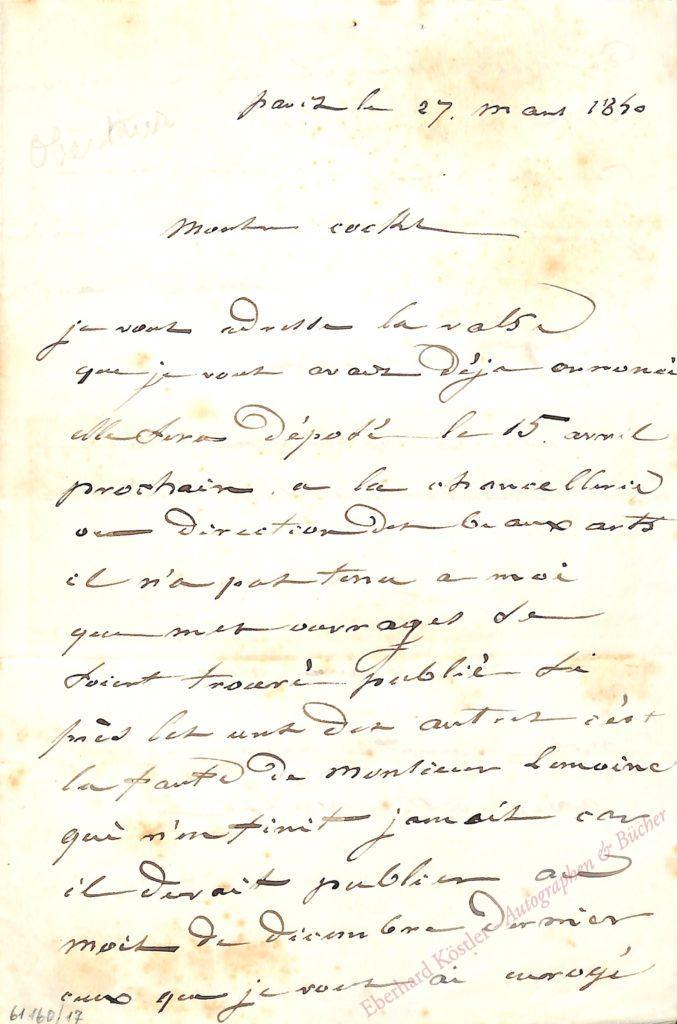 paris le 27. mars 1860
Oberthur
Monsieur cocks
je vous adresse la valse
que je vous avais déja annoncé
elle sera déposé le 15 avril
prochain a la chancellerie
ou direction des beaux arts
il n'a pas tenu a moi
que mes ouvrages se
soient trouvé publié si
près les uns des autres c'est
la faute de monsieur Lemoine
qui n'en finit jamais car
il devait publier au
mois de décembre dernier
ceux que je vous ai envoyé
Eberhard Köstler - Autographen & Bücher
61160/17